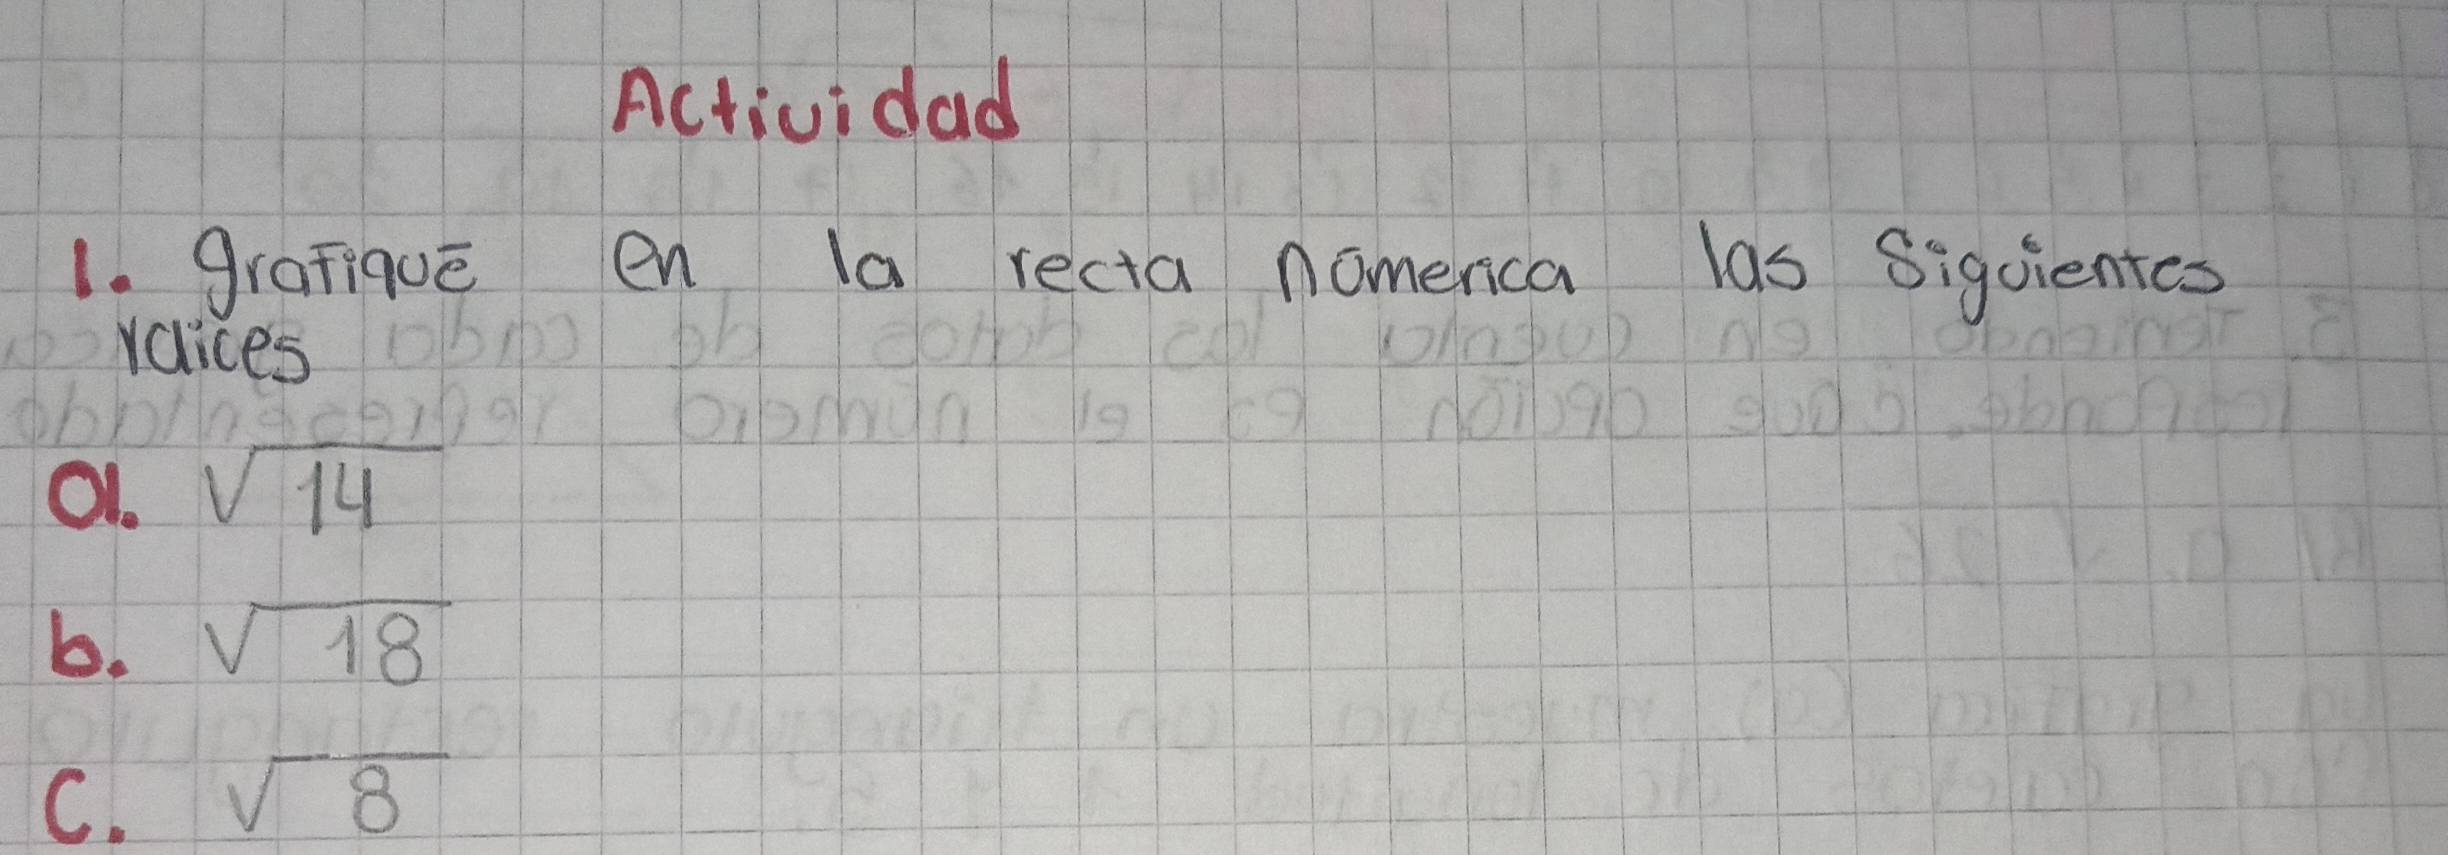 Actividad
1. grafique en la recta númerica las siguientes
raices
a. √14
b. √18
c. √8